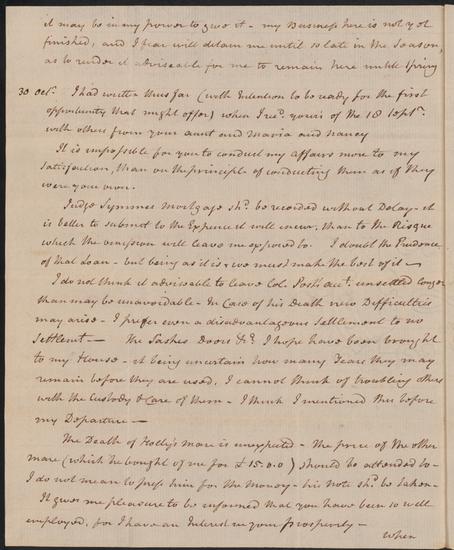 it may be in my power to give it - my Business here is not yet
finished, and I fear will detain me until so late in the Season,
as to render it adviseable for me to remain here untill Spring
30 Octr. I had written thus far (with Intention to be ready for the first
opportunity that might offer) when I recd. yours of the 18 Septr.
with others from your aunt and Maria and Nancy
It is impossible for you to conduct my affairs more to my
Satisfaction, than on the principle of conducting them as if they
were your own.
Judge Symmes Mortgage shd. be recorded without Delay - it
is better to submit to the Expence it will incur, than to the Risque
which the omission will leave me exposed to. I doubt the Prudence
of that Loan - but being as it is, we must make the best of it -
I do not think it adviseable to leave Col. Posts acct. unsettled longer
than may be unavoidable - In Case of his Death new Difficulties
may arise - I prefer even a disadvantageous Settlement to no
Settlemt. - The Sashes Doors &c. I hope have been brought
to my House - it being uncertain how many Years they may
remain before they are used, I cannot think of troubling others
with the Custody & Care of them - I think I mentioned this before
my Departure -
The Death of Holly's mare is unexpected - the price of the other
mare (which he bought of me for £15.0.0) should be attended to -
I do not mean to press him for the Money - his Note shd. be taken -
It gives me pleasure to be informed that you have been so well
employed, for I have an Interest in your Prosperity -
When